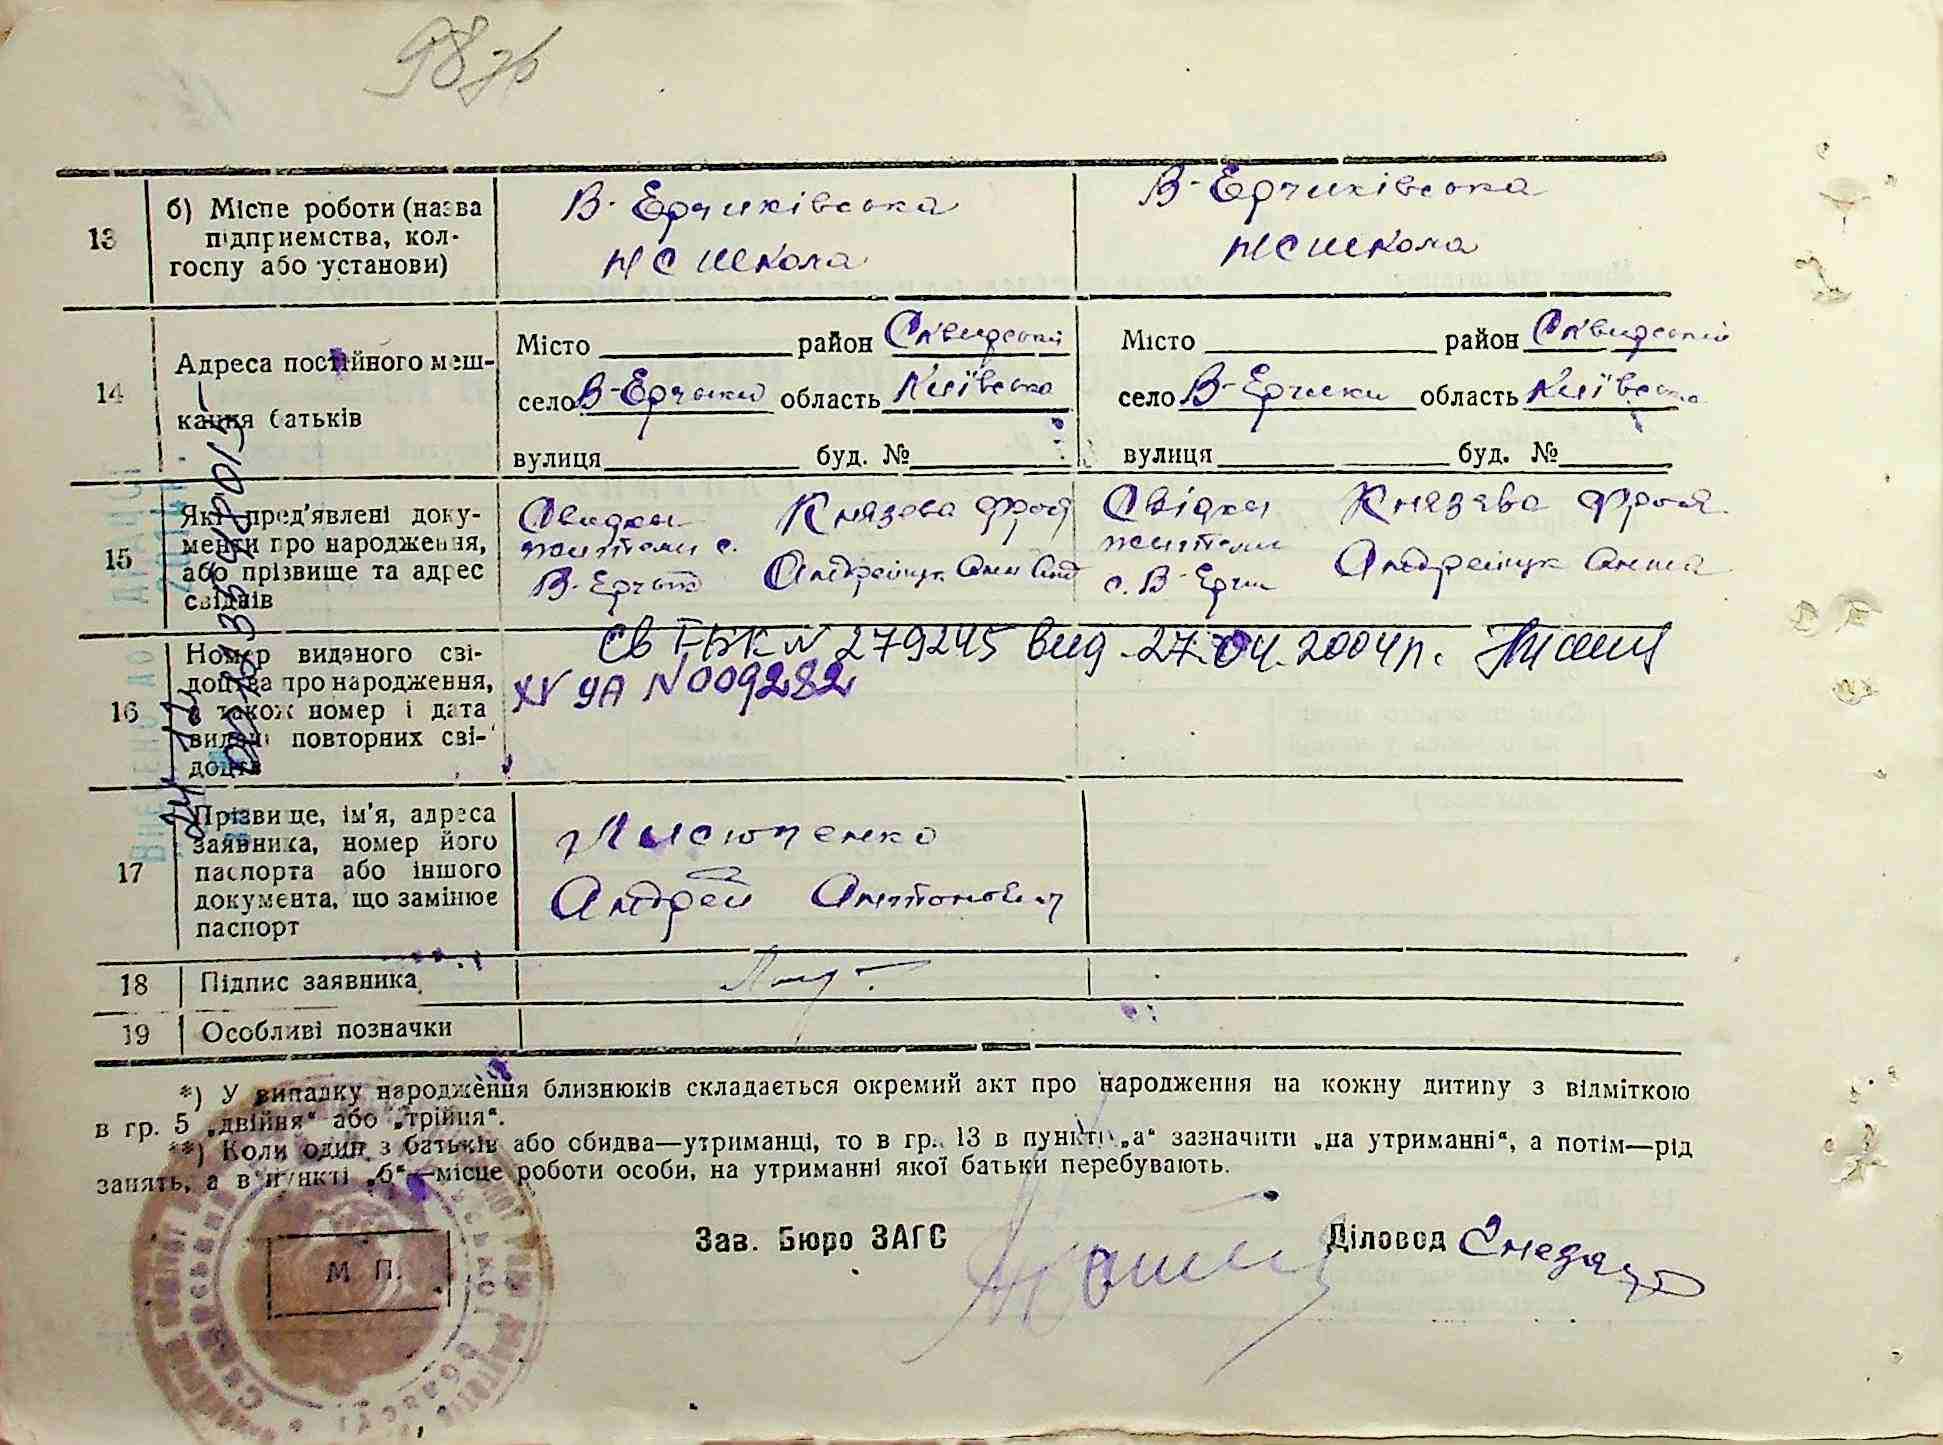 98
13 б) Місце роботи (назва В-Ерчиківська В-Ерчиківська
підприємства, кол-
госпу або установи) НС школа НС школа
14 Адреса постійного меш-
кання батьків
Місто район Сквирський Місто район Сквирський
село В-Ерчики область Київська село В-Ерчики область Київська
вулиця буд. № вулиця буд. №
15 Які пред'явлені доку-
менти про народження,
або прізвище та адрес
свідків
Свидки Князева Фрося Свідки Князева Фрося
жители с. Андрейчук жители Андрейчук
В-Ерчик с. В-Ерчик
16 Номер виданого сві-
доцтва про народження,
а також номер і дата
видачі повторних сві-
доцтв
Св I-БК N 279245 вид. 27.04.2004р.
XV УА N 009282
17 Прізвище, ім'я, адреса
заявника, номер його
паспорта або іншого
документа, що замінює
паспорт
Андрей Антонович
18 Підпис заявника
19 Особливі позначки
*) У випадку народження близнюків складається окремий акт про народження на кожну дитину з відміткою
в гр. 5 „двійня“ або „трійня“.
**) Коли один з батьків або обидва—утриманці, то в гр. 13 в пункті „а“ зазначити „на утриманні“, а потім—рід
занять, а в пункті „б“—місце роботи особи, на утриманні якої батьки перебувають.
Зав. Бюро ЗАГС Діловод
М П.